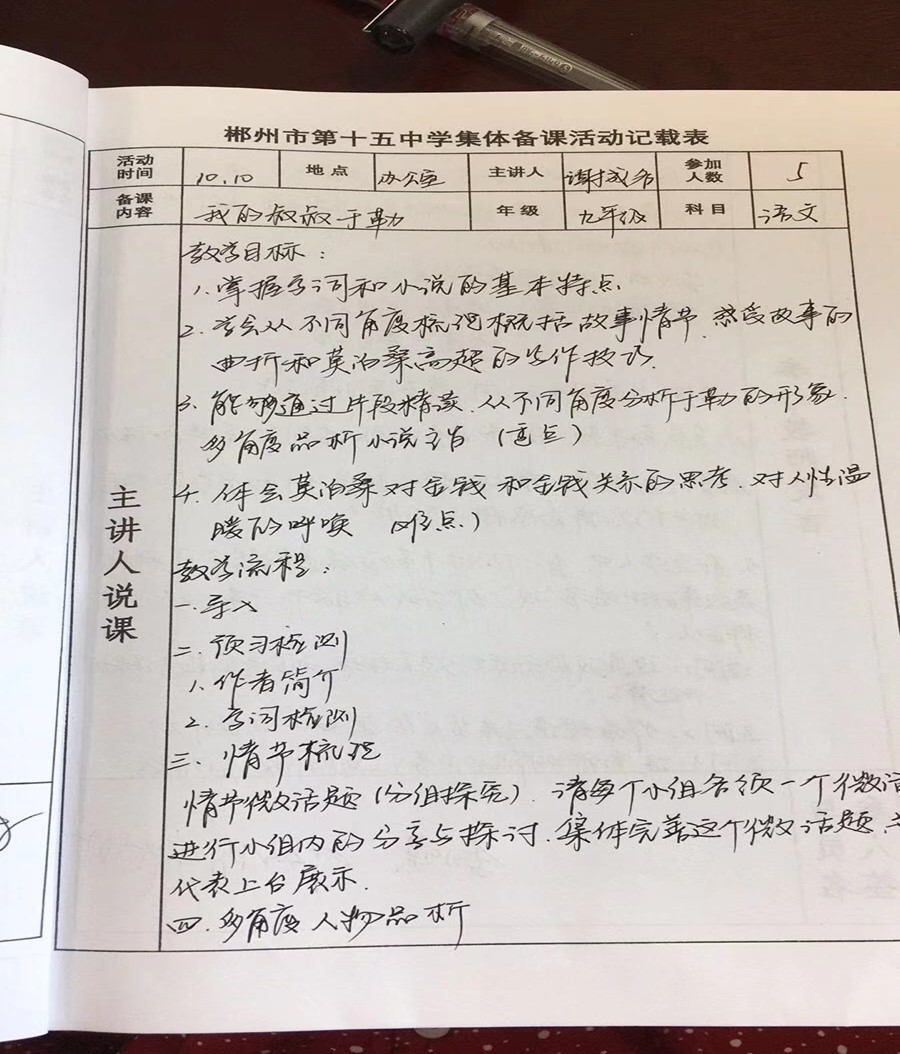 郴州市第十五中学集体备课活动记载表
活动时间 10.10 地点 办公室 主讲人 参加人数 5
备课内容 我的叔叔于勒 年级 九年级 科目 语文
主讲人说课
教学目标：
1、掌握字词和小说的基本特点
2、学会从不同角度梳理概括故事情节、感受故事的
曲折和莫泊桑高超的写作技巧.
3、能够通过片段精读、从不同角度分析于勒的形象.
多角度品析小说主旨 (重点)
4、体会莫泊桑对金钱和金钱关系的思考、对人性温
暖的呼唤 (难点)
教学流程：
一.导入
二.预习检测
1、作者简介
2、字词检测
三、情节梳理
情节微话题(分组探究)、请每个小组各领一个微话
进行小组内的分享与探讨.集体完善这个微话题、
代表上台展示.
四.多角度人物品析